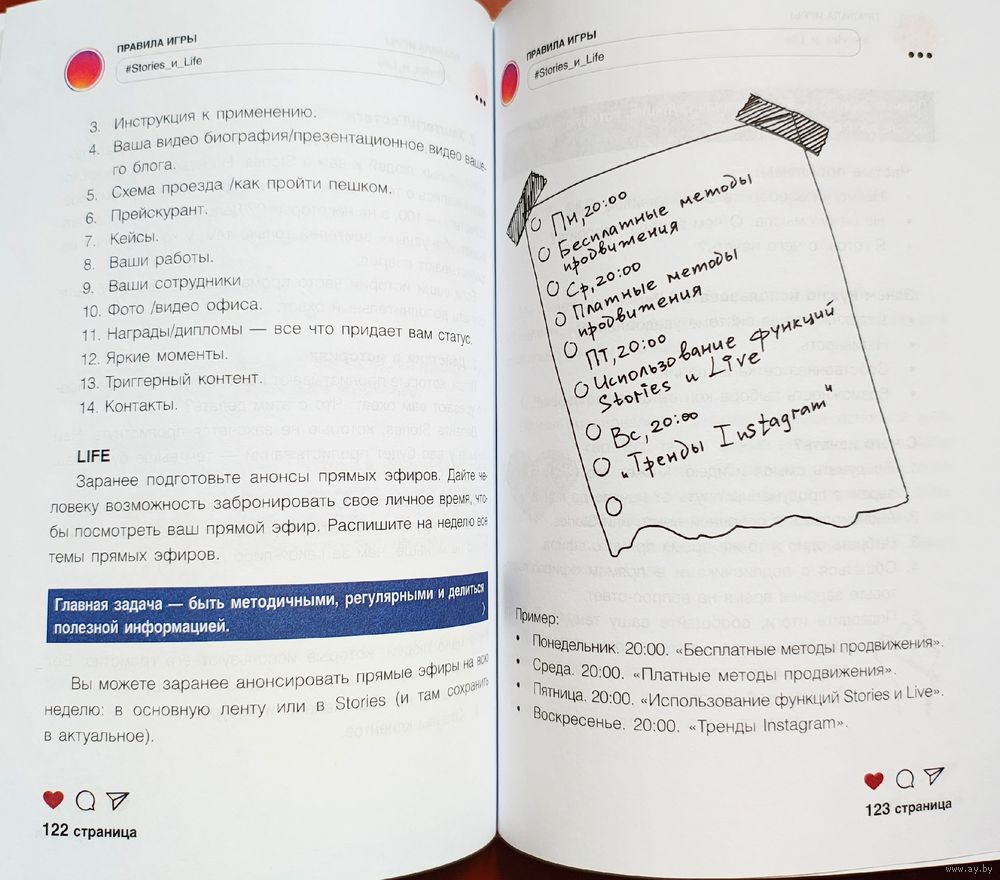 ПРАВИЛА ИГРЫ
#Stories_и_Life
3. Инструкция к применению.
4. Ваша видео биография/презентационное видео ваше-
го блога.
5. Схема проезда /как пройти пешком.
6. Прейскурант.
7. Кейсы.
8. Ваши работы.
9. Ваши сотрудники
10. Фото /видео офиса.
11. Награды/дипломы — все что придает вам статус.
12. Яркие моменты.
13. Триггерный контент.
14. Контакты.
LIFE
Заранее подготовьте анонсы прямых эфиров. Дайте че-
ловеку возможность забронировать свое личное время, что-
бы посмотреть ваш прямой эфир. Распишите на неделю все
темы прямых эфиров.
Главная задача — быть методичными, регулярными и делиться
полезной информацией.
Вы можете заранее анонсировать прямые эфиры на всю
неделю: в основную ленту или в Stories (и там сохранить
в актуальное).
122 страница
ПРАВИЛА ИГРЫ
#Stories_и_Life
Пн, 20:00
Бесплатные методы
продвижения
Ср, 20:00
Платные методы
продвижения
ПТ, 20:00
Использование функций
Stories и Live
Вс, 20:00
„Тренды Instagram"
Пример:
• Понедельник. 20:00. «Бесплатные методы продвижения».
• Среда. 20:00. «Платные методы продвижения».
• Пятница. 20:00. «Использование функций Stories и Live».
• Воскресенье. 20:00. «Тренды Instagram».
123 страница
www.ay.by